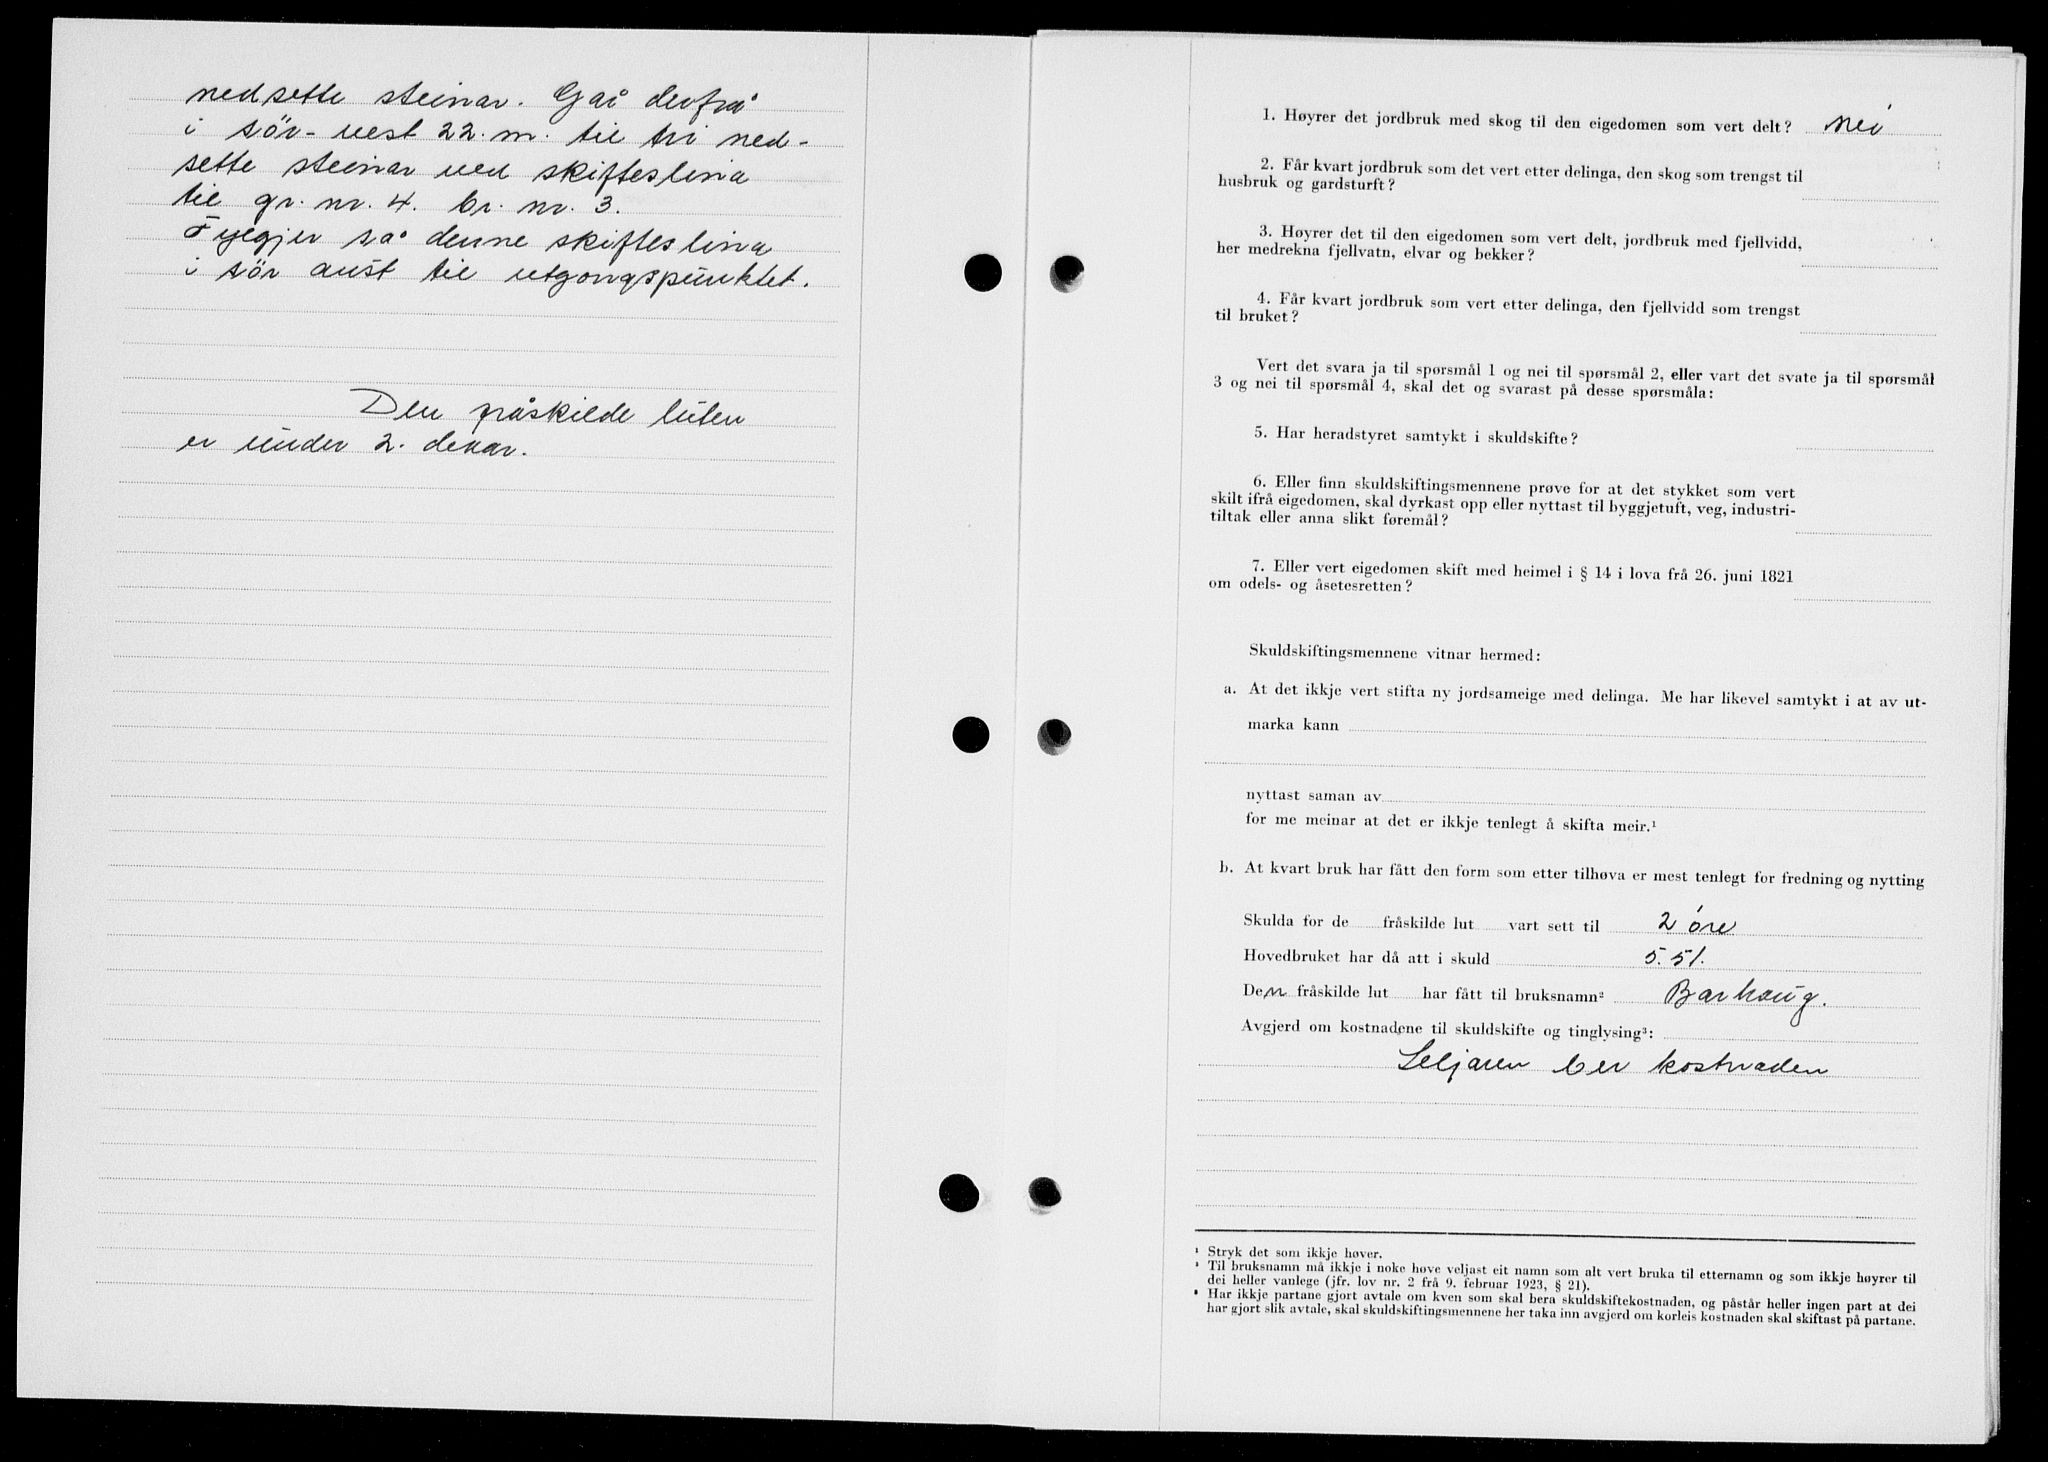 nedsette steinar. Går derfrå
i sör-vest 22. m. til tri ned-
sette steinar ved skifteslina
til gr. nr. 4. br. nr. 3.
Fyegjer så denne skifteslina
i sör aust til utgongspunktet.
Den fråskilde luten
er under 2. dekar.
1. Høyrer det jordbruk med skog til den eigedomen som vert delt? nei
2. Får kvart jordbruk som det vert etter delinga, den skog som trengst til
husbruk og gardsturft?
3. Høyrer det til den eigedomen som vert delt, jordbruk med fjellvidd,
her medrekna fjellvatn, elvar og bekker?
4. Får kvart jordbruk som vert etter delinga, den fjellvidd som trengst
til bruket?
Vert det svara ja til spørsmål 1 og nei til spørsmål 2, eller vart det svate ja til spørsmål
3 og nei til spørsmål 4, skal det og svarast på desse spørsmåla:
5. Har heradstyret samtykt i skuldskifte?
6. Eller finn skuldskiftingsmennene prøve for at det stykket som vert
skilt ifrå eigedomen, skal dyrkast opp eller nyttast til byggjetuft, veg, industri-
tiltak eller anna slikt føremål?
7. Eller vert eigedomen skift med heimel i § 14 i lova frå 26. juni 1821
om odels- og åsetesretten?
Skuldskiftingsmennene vitnar hermed:
a. At det ikkje vert stifta ny jordsameige med delinga. Me har likevel samtykt i at av ut-
marka kann
nyttast saman av
for me meinar at det er ikkje tenlegt å skifta meir.¹
b. At kvart bruk har fått den form som etter tilhøva er mest tenlegt for fredning og nytting
Skulda for de fråskilde lut vart sett til 2 öre
Hovedbruket har då att i skuld 5.51.
Den fråskilde lut har fått til bruksnamn² Barhaug.
Avgjerd om kostnadene til skuldskifte og tinglysing³:
Seljaren ber kostnaden
¹ Stryk det som ikkje høver.
² Til bruksnamn må ikkje i noke høve veljast eit namn som alt vert bruka til etternamn og som ikkje høyrer til
dei heller vanlege (jfr. lov nr. 2 frå 9. februar 1923, § 21).
³ Har ikkje partane gjort avtale om kven som skal bera skuldskiftekostnaden, og påstår heller ingen part at dei
har gjort slik avtale, skal skuldskiftingsmennene her taka inn avgjerd om korleis kostnaden skal skiftast på partane.